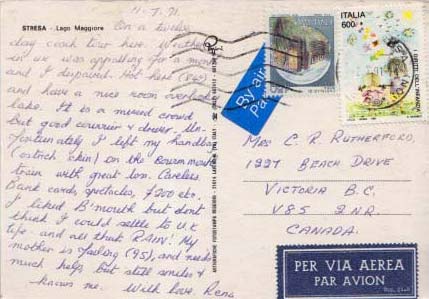 STRESA - Lago Maggiore
11-7.91.
On a twelve
day coach tour here. Weather
in UK was appalling for a month
and I despaired. Hot here (84°)
and have a nice room overlook
lake. It is a mixed crowd
but good courier & driver. Un-
fortunately I left my handbag
(ostrich skin) on the Bournemouth
train with great loss. Careless.
Bank cards, spectacles, £200 etc.
I liked B'mouth but don't
think I could settle to UK
life and all that RAIN! My
mother is failing (95), and needs
much help but still smiles &
knows me. With love. Rena
By air
Par
ITALIA
600
MRS C. R. RUTHERFORD,
1227 BEACH DRIVE
VICTORIA B.C.
V8S 2N2.
CANADA.
PER VIA AEREA
PAR AVION